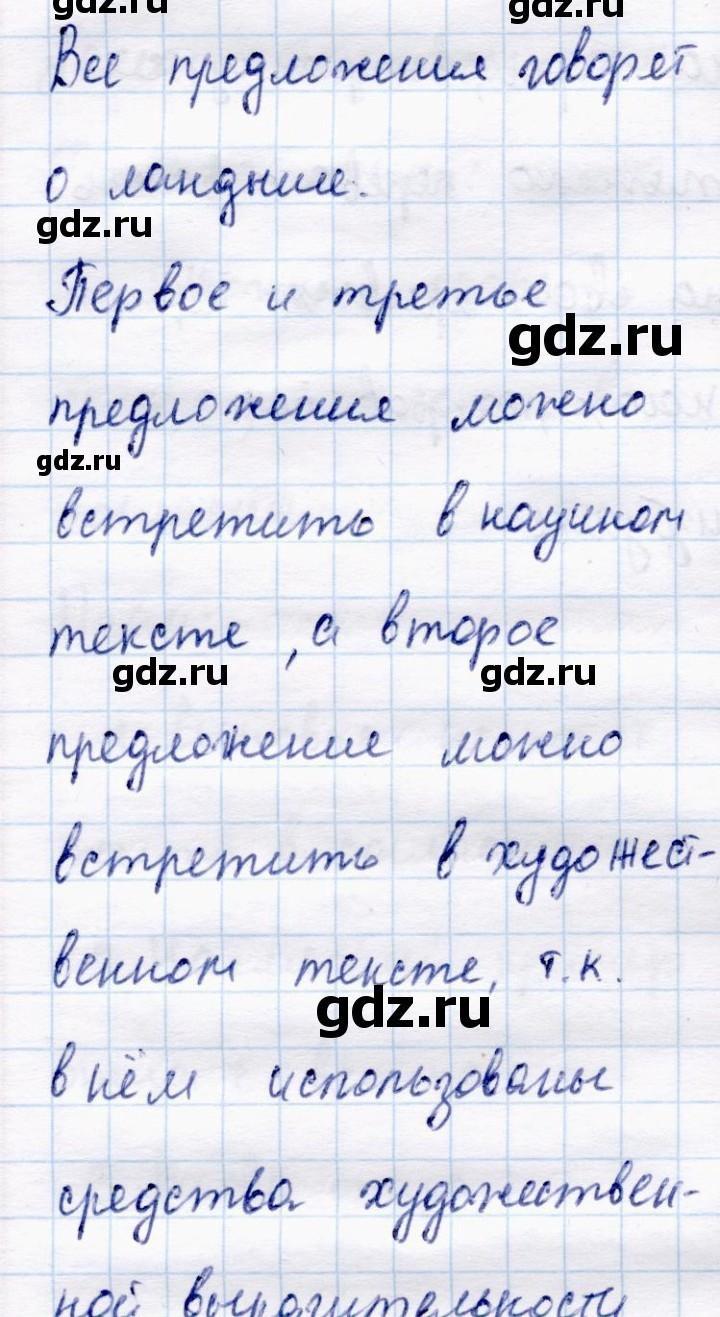 gdz.ru gdz.ru
Все предложения говорят
о ландыше.
gdz.ru
Первое и третье
gdz.ru
предложения можно
gdz.ru
встретить в научном
тексте, а второе
gdz.ru gdz.ru
предложение можно
встретить в художест-
венном тексте, т.к.
gdz.ru
в нём использованы
средства художествен-
ной выразительности